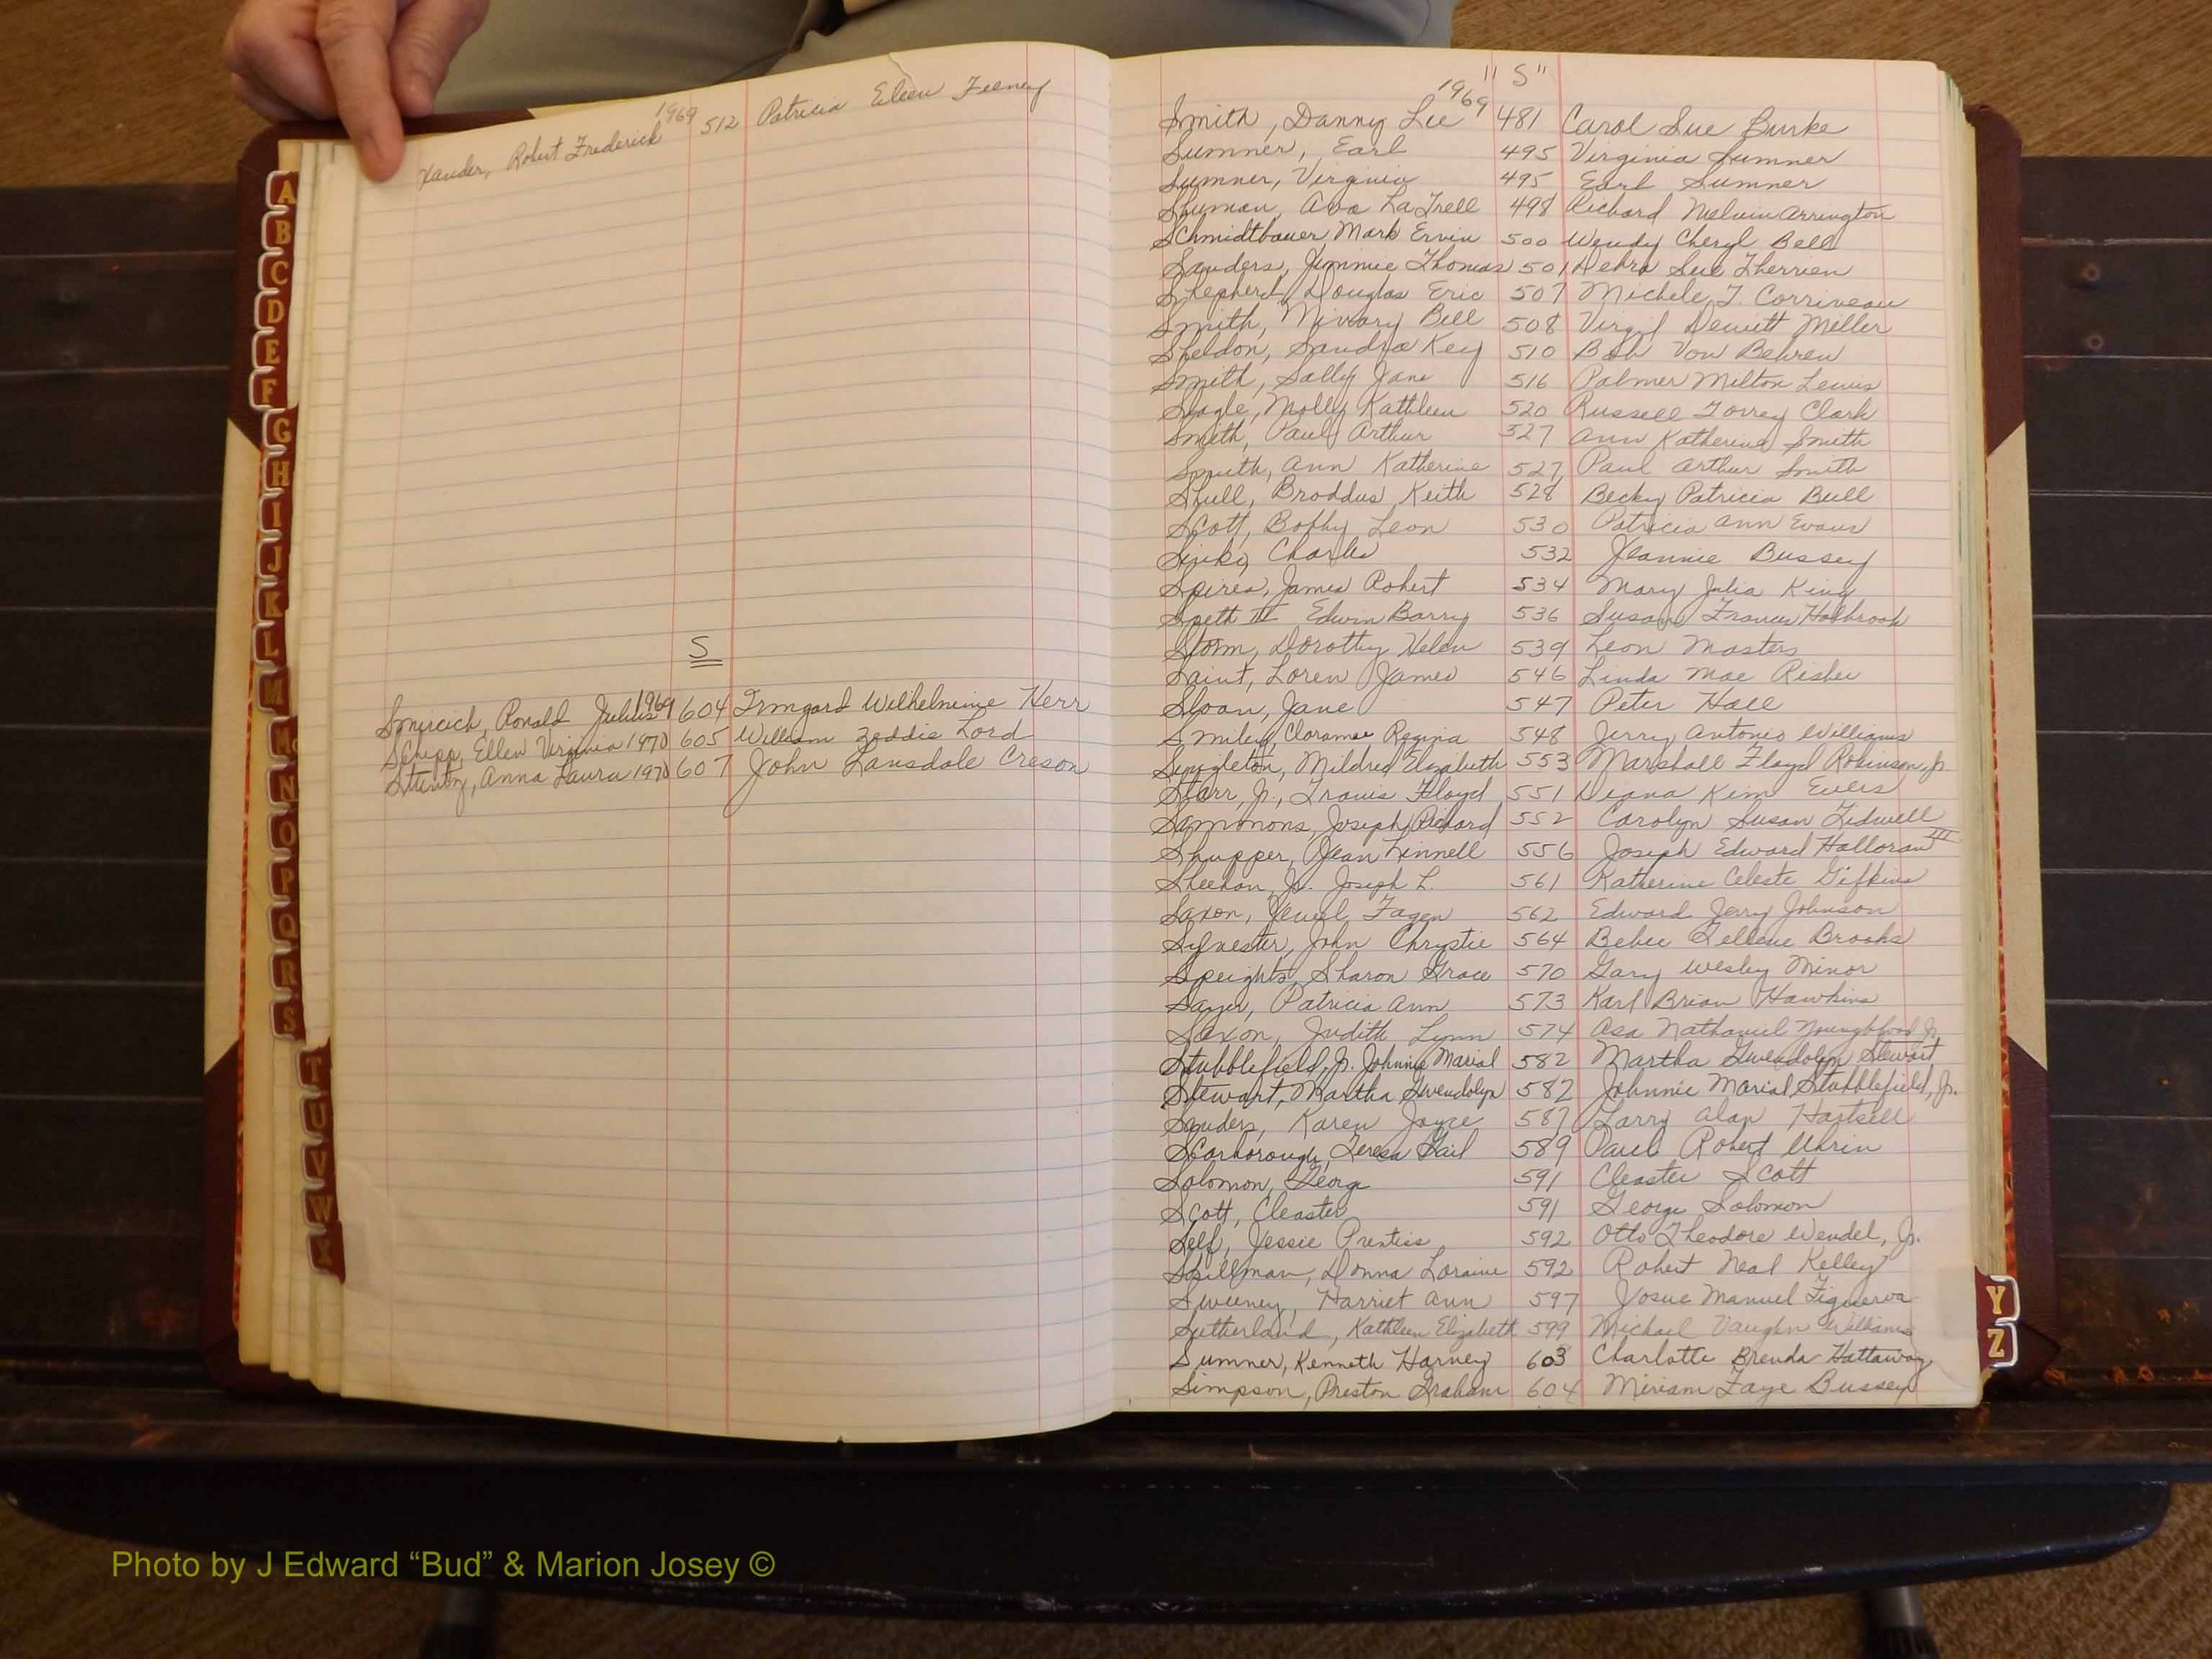 A
B
C
D
E
F
G
H
I
J
K
L
M
Mc
N
O
P
Q
R
S
T
U
V
W
X
Xander, Robert Frederick 1969 512 Patricia Eileen Feeney
S
Smircich, Ronald Julius 1969 604 Irmgard Wilhelmine Herr
Schipp, Ellen Virginia 1970 605 William Zeddie Lord
Anna Laura 1970 607 John Lansdale Creson
"S"
1969
Smith, Danny Lee 481 Carol Sue Burke
Sumner, Earl 495 Virginia Sumner
Sumner, Virginia 495 Earl Sumner
Shuman, Ava LaTrell 498 Richard Melvin Arrington
Schmidtbauer, Mark Ervin 500 Wendy Cheryl Bell
Sanders, Jimmie Thomas 501 Debra Sue Therrien
Shepherd, Douglas Eric 507 Michele T. Corriveau
Smith, Bill 508 Virgil Dewitt Miller
Sheldon, Sandra Key 510 Bob Von Behren
Smith, Sally Jane 516 Palmer Milton Lewis
Slagle, Molly Kathleen 520 Russell Torrey Clark
Smith, Paul Arthur 527 Ann Katherine Smith
Smith, Ann Katherine 527 Paul Arthur Smith
Shull, Broddus Keith 528 Becky Patricia Bull
Scott, Bobby Leon 530 Patricia Ann Evans
Charles 532 Jeannie Bussey
Spires, James Robert 534 Mary Julia King
Speth III Edwin Barry 536 Susan Frances Holbrook
Storm, Dorothy Helen 539 Leon Masters
Saint, Loren James 546 Linda Mae Risher
Sloan, Jane 547 Peter Hall
Smiley, Claramae Regina 548 Jerry Antonio Williams
Singleton, Mildred Elizabeth 553 Marshall Floyd Robinson, Jr.
Starr, Jr., Travis Floyd 551 Deana Kim Evers
Sammons, Joseph Richard 552 Carolyn Susan Tidwell
Shupper, Jean Linnell 556 Joseph Edward Halloran III
Sheehan, Jr. Joseph L. 561 Katherine Celeste Gifkins
Saxon, Jewel Fagen 562 Edward Jerry Johnson
Sylvester, John Chrystie 564 Bebee Tellene Brooks
Speights, Sharon Grace 570 Gary Wesley Minor
Sayer, Patricia Ann 573 Karl Brian Hawkins
Saxon, Judith Lynn 574 Asa Nathaniel Youngblood Jr.
Stubblefield, Jr. Johnnie Marial 582 Martha Gwendolyn Stewart
Stewart, Martha Gwendolyn 582 Johnnie Marial Stubblefield, Jr.
Sanders, Karen Joyce 587 Larry Alan Hartsell
Scarborough, Teresa Gail 589 Paul Robert Uhrin
Solomon, George 591 Cleaster Scott
Scott, Cleaster 591 George Solomon
Self, Jessie Prentiss 592 Otto Theodore Wendel, Jr.
Spillman, Donna Loraine 592 Robert Neal Kelley
Sweeney, Harriet Ann 597 Josue Manuel Figueroa
Sutherland, Kathleen Elizabeth 599 Michael Vaughn Williams
Sumner, Kenneth Harvey 603 Charlotte Brenda Hattaway
Simpson, Preston Graham 604 Miriam Faye Bussey
Y
Z
Photo by J Edward “Bud” & Marion Josey ©